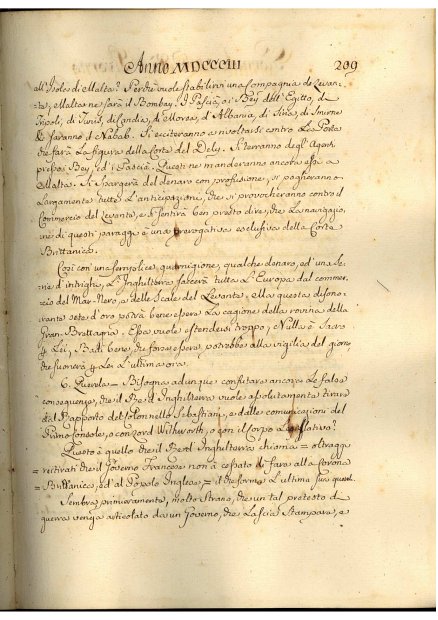 Anno MDCCCIII 209
all' Isole di Malta? Perchè vuole stabilirvi una Compagnia di Levan-
=te; Malta ne sarà il Bombay. I Pascià, o i Bey dell' Egitto, di
Tripoli, di Tunis, di Candia, di Morea, d' Albania, di Siria, di Smirne
ne saranno i Nabab. Si ecciteranno a rivoltarsi contro La Porta
che farà La figura della Corte del Dely. Si terranno degl' Agenti
presso i Bey, ed i Pascià. Questi ne manderanno ancor essi a
Malta. Si spargerà del denaro con profusione, si pagheranno
Largamente tutte L' anticipazioni, che si provocheranno contro il
Commercio del Levante, e si sentirà ben presto dire, che La navigazio-
ne di questi paraggi è una prerogativa esclusiva della Corte
Brittanica.
Così con una semplice guarnigione, qualche denaro, ed una Se-
rie d' intrighi, L' Inghilterra farà tutta L' Europa dal commer-
cio del Mar-Nero, e delle Scale del Levante. Ma questa disono-
rante sete d' oro potrà bene essere La cagione della rovina della
Gran-Brettagna. Essa vuole estendersi troppo; Nulla è Sacro
p Lei. Badi bene, che forse essere potrebbe alla vigilia del giorno
che suonerà p Lei L' ultima ora.
6. Querela = Bisogna adunque confutare ancora Le false
conseguenze, che il Rè d' Inghilterra vuole assolutamente tirare
dal Rapporto del Colonnello Sebastiani, e dalle comunicazioni del
Primo Console, o con Lord Withworth, o con il Corpo Legislativo?
Questo è quello che il Rè d' Inghilterra chiama = oltraggi
= reiterati che il Governo Francese non à cessato di fare alla Corona
= Brittanica, ed al Popolo Inglese, = il che forma L' ultima sua querel.
Sembra primieramente, molto strano, che un tal pretesto di
guerra venga articolato da un Governo, che Lascia Stampare, e